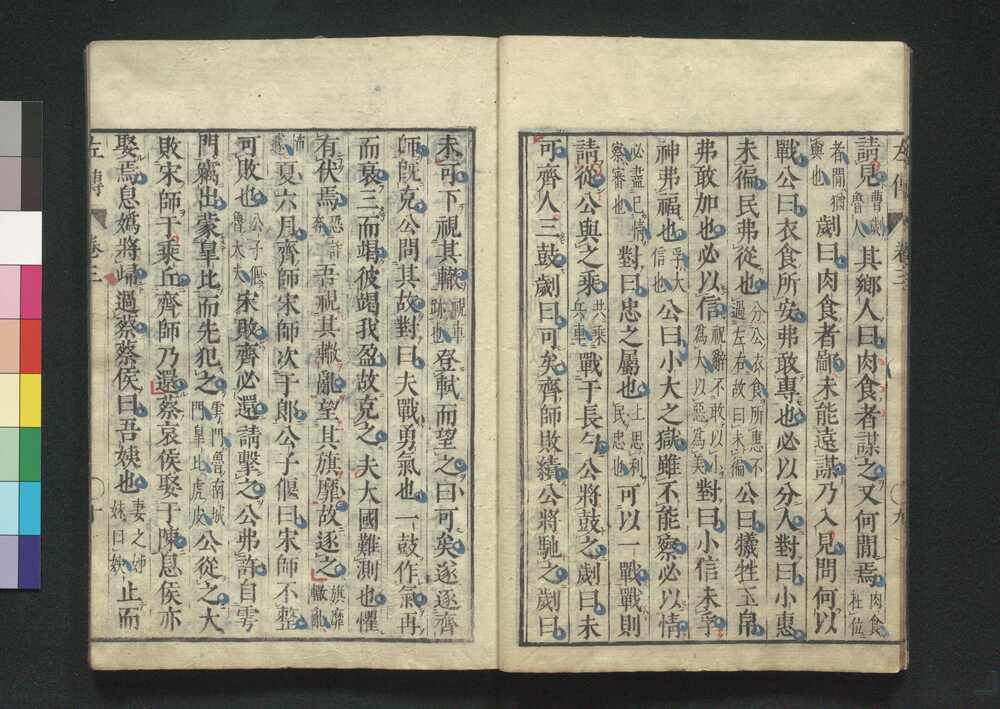 左傳 卷三 九
請見曹劌魯人其鄉人曰肉食者謀之又何間焉肉食在位
者間猶與也劌曰肉食者鄙未能遠謀乃入見問何以
戰公曰衣食所安弗敢專也必以分人對曰小惠
未徧民弗從也分公衣食所惠不過左右故曰未徧公曰犧牲玉帛
弗敢加也必以信祝辭不敢以小為大以惡為美對曰小信未孚
神弗福也孚大信也公曰小大之獄雖不能察必以情
必盡己情察審也對曰忠之屬也上思利民忠也可以一戰戰則
請從公與之乘共乘兵車戰于長勺公將鼓之劌曰未
可齊人三鼓劌曰可矣齊師敗績公將馳之劌曰
未可下視其轍視車跡也登軾而望之曰可矣遂逐齊
師既克公問其故對曰夫戰勇氣也一鼓作氣再
而衰三而竭彼竭我盈故克之夫大國難測也懼
有伏焉恐詐奔吾視其轍亂望其旗靡故逐之旗靡轍亂
怖遽夏六月齊師宋師次于郎公子偃曰宋師不整
可敗也公子偃魯大夫宋敗齊必還請擊之公弗許自雩
門竊出蒙皐比而先犯之雩門魯南城門皐比虎皮公從之大
敗宋師于乘丘齊師乃還蔡哀侯娶于陳息侯亦
娶焉息嬀將歸過蔡蔡侯曰吾姨也妻之姊妹曰姨止而
左傳 卷三 十